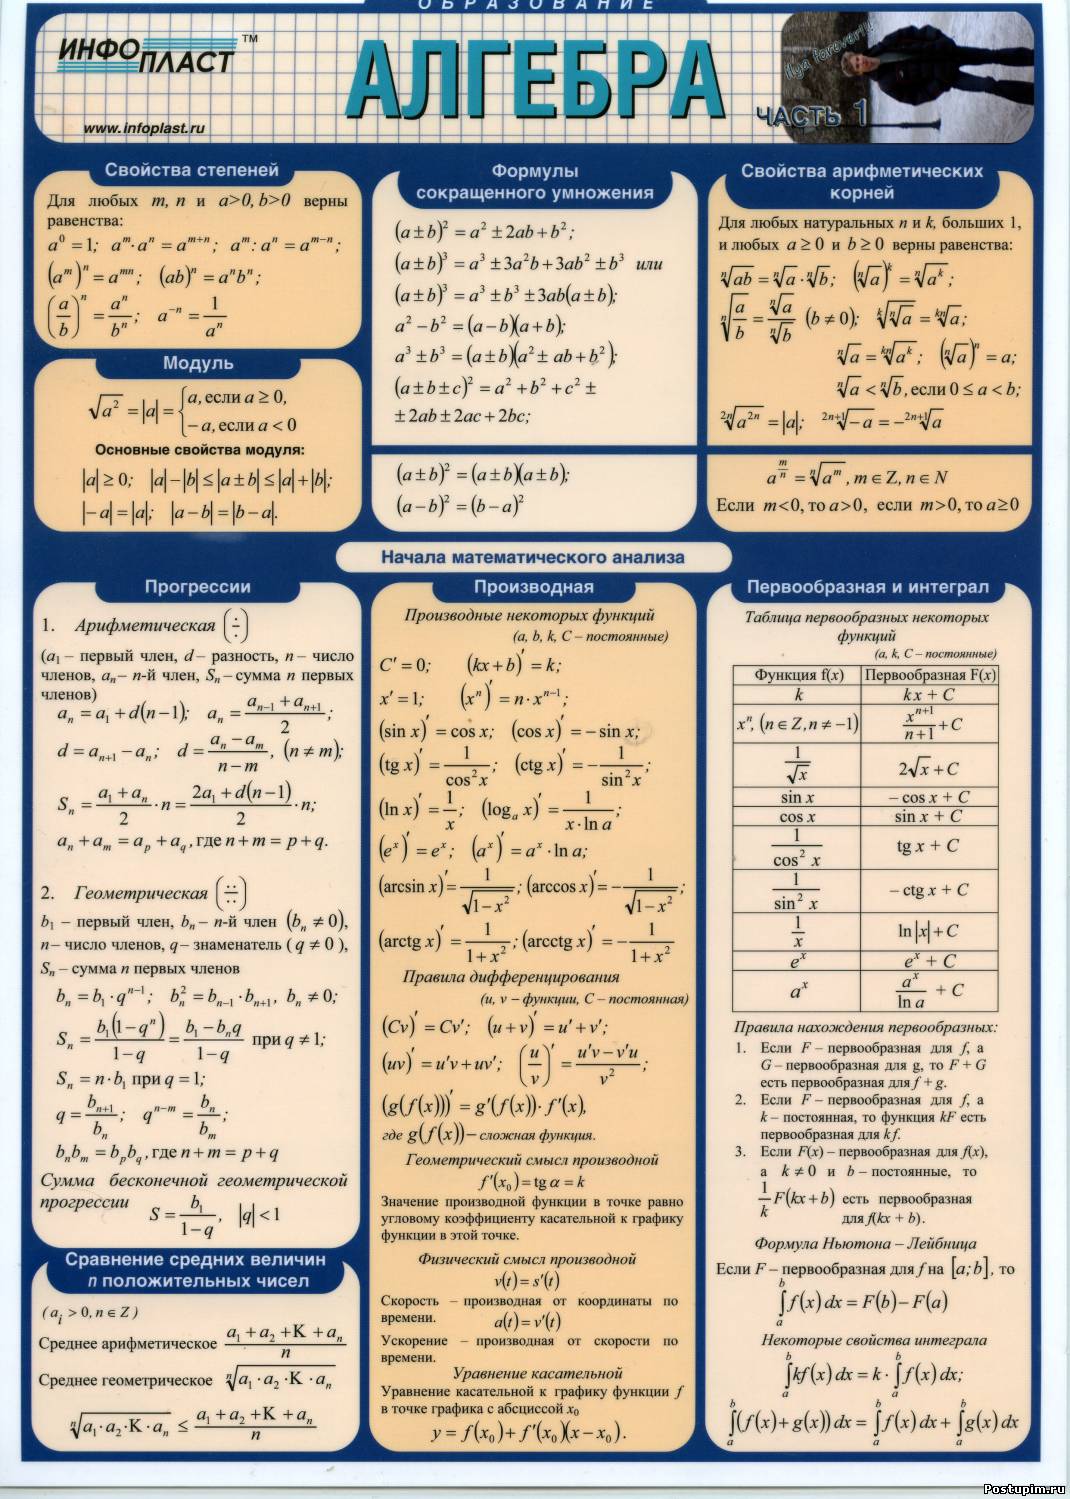 ОБРАЗОВАНИЕ
ИНФОПЛАСТ™
www.infoplast.ru
АЛГЕБРА
Ilya forever!!!
ЧАСТЬ 1
Свойства степеней
Для любых m, n и a>0, b>0 верны
равенства:
a⁰ = 1; aᵐ·aⁿ = aᵐ⁺ⁿ; aᵐ : aⁿ = aᵐ⁻ⁿ;
(aᵐ)ⁿ = aᵐⁿ; (ab)ⁿ = aⁿbⁿ;
(a/b)ⁿ = aⁿ/bⁿ; a⁻ⁿ = 1/aⁿ
Модуль
√a² = |a| = { a, если a ≥ 0,
− a, если a < 0
Основные свойства модуля:
|a| ≥ 0; |a| − |b| ≤ |a ± b| ≤ |a| + |b|;
|−a| = |a|; |a − b| = |b − a|.
Формулы
сокращенного умножения
(a ± b)² = a² ± 2ab + b²;
(a ± b)³ = a³ ± 3a²b + 3ab² ± b³ или
(a ± b)³ = a³ ± b³ ± 3ab(a ± b);
a² − b² = (a − b)(a + b);
a³ ± b³ = (a ± b)(a² ± ab + b²);
(a ± b ± c)² = a² + b² + c² ±
± 2ab ± 2ac + 2bc;
(a ± b)² = (a ± b)(a ± b);
(a − b)² = (b − a)²
Свойства арифметических
корней
Для любых натуральных n и k, больших 1,
и любых a ≥ 0 и b ≥ 0 верны равенства:
ⁿ√ab = ⁿ√a · ⁿ√b; (ⁿ√a)ᵏ = ⁿ√aᵏ;
ⁿ√(a/b) = ⁿ√a/ⁿ√b (b ≠ 0); ᵏ√ⁿ√a = ᵏⁿ√a;
ⁿ√a = ᵏⁿ√aᵏ; (ⁿ√a)ⁿ = a;
ⁿ√a < ⁿ√b, если 0 ≤ a < b;
²ⁿ√a²ⁿ = |a|; ²ⁿ⁺¹√−a = −²ⁿ⁺¹√a
a^(m/n) = ⁿ√aᵐ, m ∈ Z, n ∈ N
Если m<0, то a>0, если m>0, то a≥0
Начала математического анализа
Прогрессии
1. Арифметическая (÷)
(a₁ – первый член, d – разность, n – число
членов, aₙ– n-й член, Sₙ – сумма n первых
членов)
aₙ = a₁ + d(n−1); aₙ = (aₙ₋₁ + aₙ₊₁)/2;
d = aₙ₊₁ − aₙ; d = (aₙ − aₘ)/(n − m), (n ≠ m);
Sₙ = (a₁ + aₙ)/2 · n = (2a₁ + d(n−1))/2 · n;
aₙ + aₘ = aₚ + a_q, где n + m = p + q.
2. Геометрическая (∺)
b₁ – первый член, bₙ – n-й член (bₙ ≠ 0),
n– число членов, q– знаменатель ( q ≠ 0 ),
Sₙ – сумма n первых членов
bₙ = b₁ · qⁿ⁻¹; bₙ² = bₙ₋₁ · bₙ₊₁, bₙ ≠ 0;
Sₙ = b₁(1 − qⁿ)/(1 − q) = (b₁ − bₙq)/(1 − q) при q ≠ 1;
Sₙ = n · b₁ при q = 1;
q = bₙ₊₁/bₙ; qⁿ⁻ᵐ = bₙ/bₘ;
bₙbₘ = bₚb_q, где n + m = p + q
Сумма бесконечной геометрической
прогрессии S = b₁/(1 − q), |q| < 1
Сравнение средних величин
n положительных чисел
( aᵢ > 0, n ∈ Z )
Среднее арифметическое (a₁ + a₂ + K + aₙ)/n
Среднее геометрическое ⁿ√a₁ · a₂ · K · aₙ
ⁿ√a₁ · a₂ · K · aₙ ≤ (a₁ + a₂ + K + aₙ)/n
Производная
Производные некоторых функций
(a, b, k, C – постоянные)
C′ = 0; (kx + b)′ = k;
x′ = 1; (xⁿ)′ = n · xⁿ⁻¹;
(sin x)′ = cos x; (cos x)′ = − sin x;
(tg x)′ = 1/cos²x; (ctg x)′ = −1/sin²x;
(ln x)′ = 1/x; (logₐ x)′ = 1/(x · ln a);
(eˣ)′ = eˣ; (aˣ)′ = aˣ · ln a;
(arcsin x)′ = 1/√(1 − x²); (arccos x)′ = −1/√(1 − x²);
(arctg x)′ = 1/(1 + x²); (arcctg x)′ = −1/(1 + x²)
Правила дифференцирования
(u, v – функции, C – постоянная)
(Cv)′ = Cv′; (u + v)′ = u′ + v′;
(uv)′ = u′v + uv′; (u/v)′ = (u′v − v′u)/v²;
(g(f(x)))′ = g′(f(x)) · f′(x),
где g(f(x)) – сложная функция.
Геометрический смысл производной
f′(x₀) = tg α = k
Значение производной функции в точке равно
угловому коэффициенту касательной к графику
функции в этой точке.
Физический смысл производной
v(t) = s′(t)
Скорость – производная от координаты по
времени. a(t) = v′(t)
Ускорение – производная от скорости по
времени.
Уравнение касательной
Уравнение касательной к графику функции f
в точке графика с абсциссой x₀
y = f(x₀) + f′(x₀)(x − x₀).
Первообразная и интеграл
Таблица первообразных некоторых
функций
(a, k, C – постоянные)
Функция f(x) Первообразная F(x)
k kx + C
xⁿ, (n ∈ Z, n ≠ −1) xⁿ⁺¹/(n+1) + C
1/√x 2√x + C
sin x – cos x + C
cos x sin x + C
1/cos² x tg x + C
1/sin² x – ctg x + C
1/x ln|x| + C
eˣ eˣ + C
aˣ aˣ/ln a + C
Правила нахождения первообразных:
1. Если F – первообразная для f, а
G – первообразная для g, то F + G
есть первообразная для f + g.
2. Если F – первообразная для f, а
k – постоянная, то функция kF есть
первообразная для kf.
3. Если F(x) – первообразная для f(x),
а k ≠ 0 и b – постоянные, то
1/k F(kx + b) есть первообразная
для f(kx + b).
Формула Ньютона – Лейбница
Если F – первообразная для f на [a; b], то
∫ₐᵇ f(x) dx = F(b) − F(a)
Некоторые свойства интеграла
∫ₐᵇ kf(x) dx = k · ∫ₐᵇ f(x) dx;
∫ₐᵇ (f(x) + g(x)) dx = ∫ₐᵇ f(x) dx + ∫ₐᵇ g(x) dx
Postupim.ru